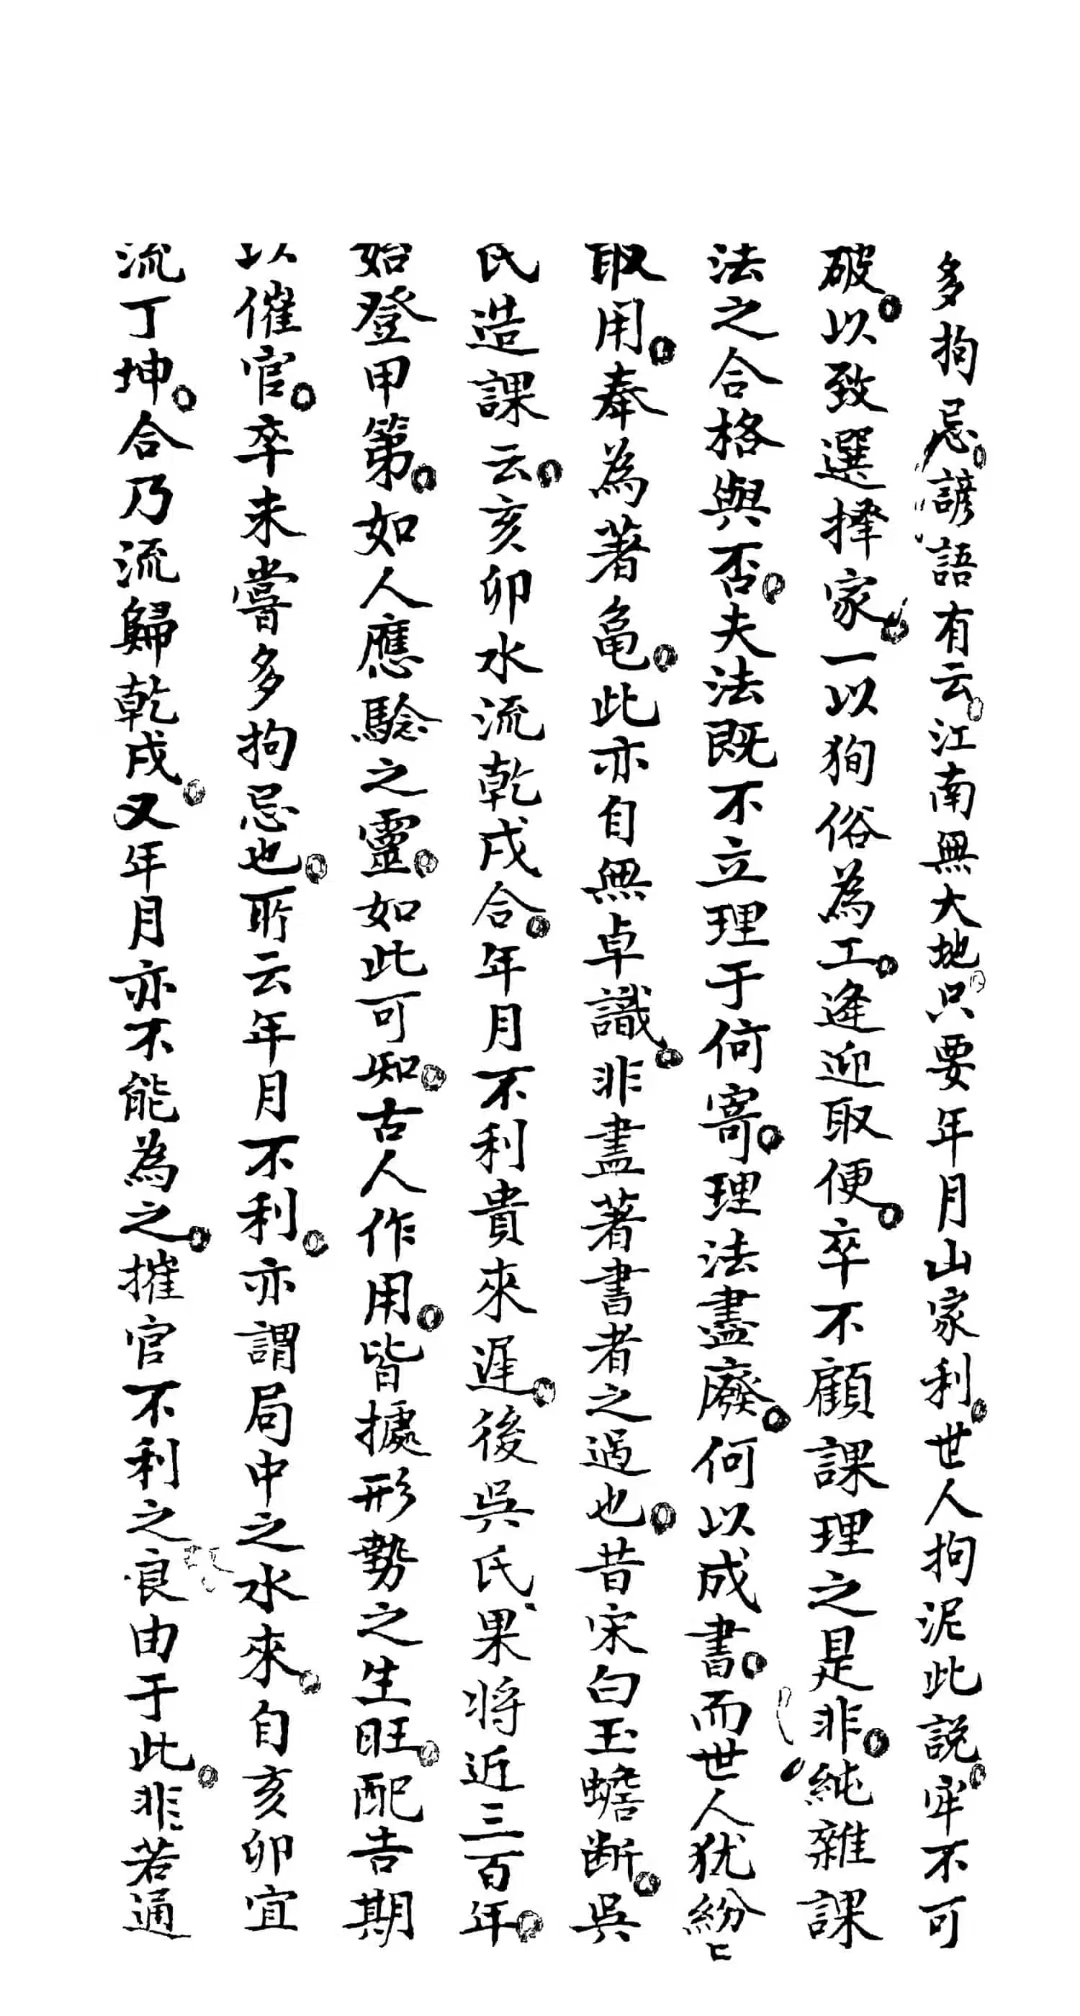 多拘忌諺語有云江南無大地只要年月山家利世人拘泥此説牢不可
破以致選擇家一以狥俗為工逢迎取便卒不顧課理之是非純雜課
法之合格與否夫法既不立理于何寄理法盡廢何以成書而世人犹紛匕
取用奉為蓍龜此亦自無卓識非盡著書者之過也昔宋白玉蟾断吳
氏造課云亥卯水流乾戌合年月不利貴來遲後吳氏果将近三百年
始登甲第如人應驗之靈如此可知古人作用皆據形勢之生旺配吉期
以催官卒未嘗多拘忌也所云年月不利亦謂局中之水來自亥卯宜
流丁坤合乃流歸乾戌又年月亦不能為之摧官不利之良由于此非若通